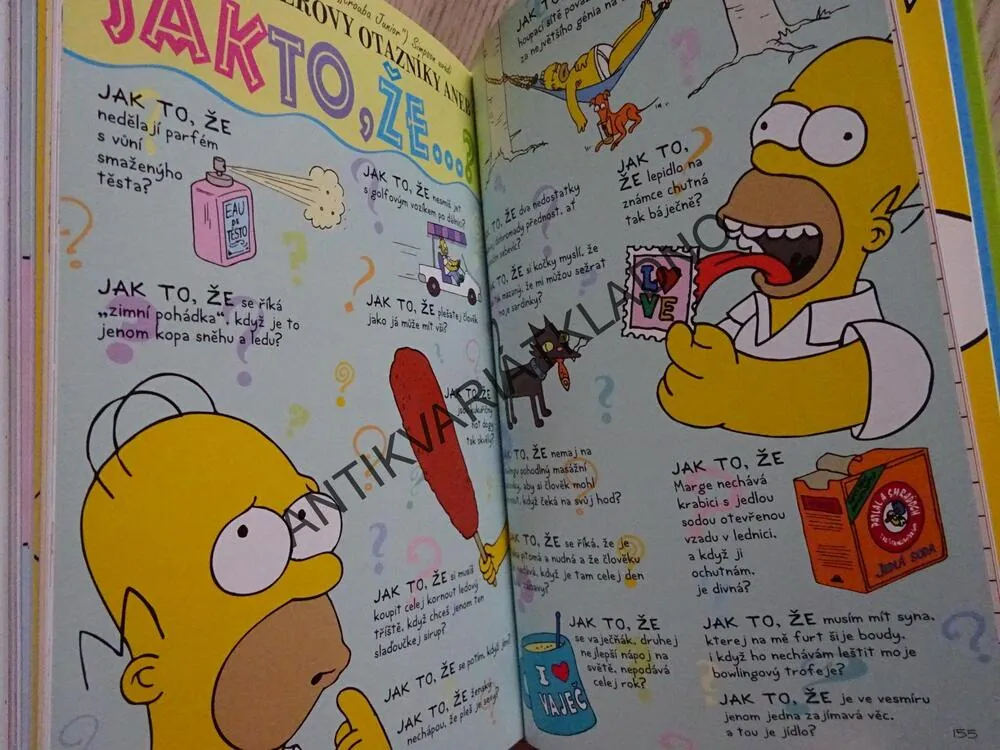 Šťourala Junior") Simpson uvádí
OTAZNÍKY ANEB
JAK TO, ŽE...?
JAK TO, ŽE
nedělají parfém
s vůní
smaženýho
těsta?
EAU
DE
TĚSTO
JAK TO, ŽE nesmíš jet
s golfovým vozíkem po dálnici?
JAK TO, ŽE se říká
„zimní pohádka“, když je to
jenom kopa sněhu a ledu?
JAK TO, ŽE plešatej člověk
jako já může mít vši?
JAK TO, ŽE
jsou
hot dogy
tak skvělý?
JAK TO, ŽE si musíš
koupit celej kornout ledový
tříště, když chceš jenom ten
slaďoučkej sirup?
JAK TO, ŽE se potím, když jím?
JAK TO, ŽE ženský
nechápou, že pleš je sexy?
JAK TO, ŽE
houpací sítě
za největšího génia na
JAK TO,
ŽE lepidlo na
známce chutná
tak báječně?
I
VE
TO, ŽE dva nedostatky
přednost, ať
TO, ŽE si kočky myslí, že
že mi můžou sežrat
moje sardinky?
TO, ŽE nemaj na
pohodlný masážní
aby si člověk mohl
když čeká na svůj hod?
TO, ŽE se říká, že je
pitomá a nudná a že člověku
když je tam celej den
zábavy?
JAK TO, ŽE
Marge nechává
krabici s jedlou
sodou otevřenou
vzadu v lednici,
a když ji
ochutnám,
je divná?
JEDLÁ SODA
JAK TO, ŽE
se vaječňák, druhej
nejlepší nápoj na
světě, nepodává
celej rok?
I
VAJEČ
JAK TO, ŽE musím mít syna,
kterej na mě furt šije boudy,
i když ho nechávám leštit moje
bowlingový trofeje?
JAK TO, ŽE je ve vesmíru
jenom jedna zajímavá věc,
a tou je jídlo?
155
ANTIKVARIÁT KLADNO